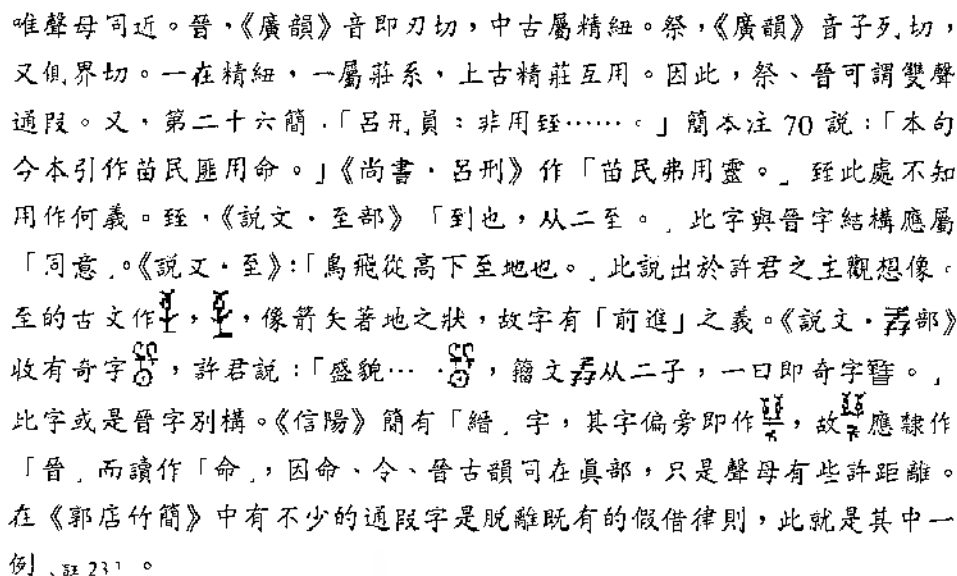 唯聲母司近。晉,《廣韻》音即刃切,中古屬精紐。祭,《廣韻》音子列切,
又側界切。一在精紐,一屬莊系,上古精莊互用。因此,祭、晉可謂雙聲
通叚。又,第二十六簡,「呂刑員:非用臸……。」簡本注 70 說:「本句
今本引作苗民匪用命。」《尚書·呂刑》作「苗民弗用靈。」臸此處不知
用作何義。臸,《說文·至部》「到也,从二至。」此字與晉字結構應屬
「同意」。《說文·至》:「鳥飛從高下至地也。」此說出於許君之主觀想像。
至的古文作,,像箭矢著地之狀,故字有「前進」之義。《說文·孨部》
收有奇字,許君說:「盛貌…·,籀文从二子,一曰即奇字簪。」
此字或是晉字別構。《信陽》簡有「縉」字,其字偏旁即作,故應隸作
「晉」而讀作「命」,因命、令、晉古韻司在真部,只是聲母有些許距離。
在《郭店竹簡》中有不少的通叚字是脫離既有的假借律則,此就是其中一
例、註231。